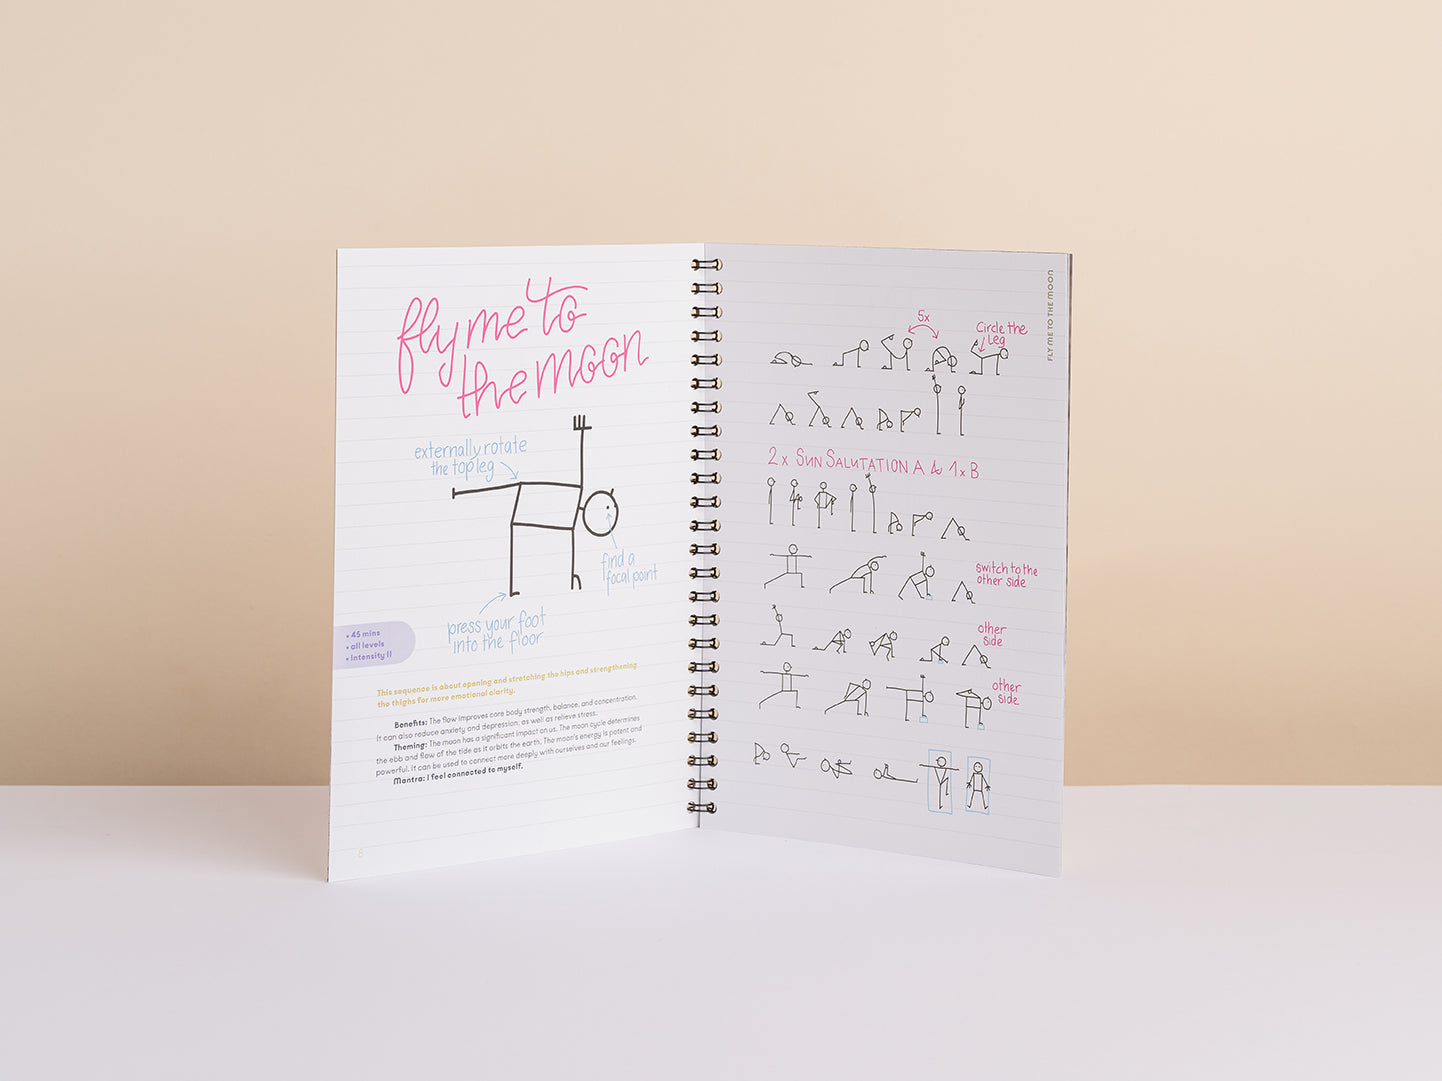 fly me to
the moon
externally rotate
the top leg
find a
focal point
press your foot
into the floor
• 45 mins
• all levels
• Intensity II
This sequence is about opening and stretching the hips and strengthening
the thighs for more emotional clarity.
Benefits: The flow improves core body strength, balance, and concentration.
It can also reduce anxiety and depression, as well as relieve stress.
Theming: The moon has a significant impact on us. The moon cycle determines
the ebb and flow of the tide as it orbits the earth. The moon's energy is potent and
powerful. It can be used to connect more deeply with ourselves and our feelings.
Mantra: I feel connected to myself.
8
FLY ME TO THE MOON
5x
Circle the
Leg
2x SUN SALUTATION A & 1x B
switch to the
other side
other
side
other
side